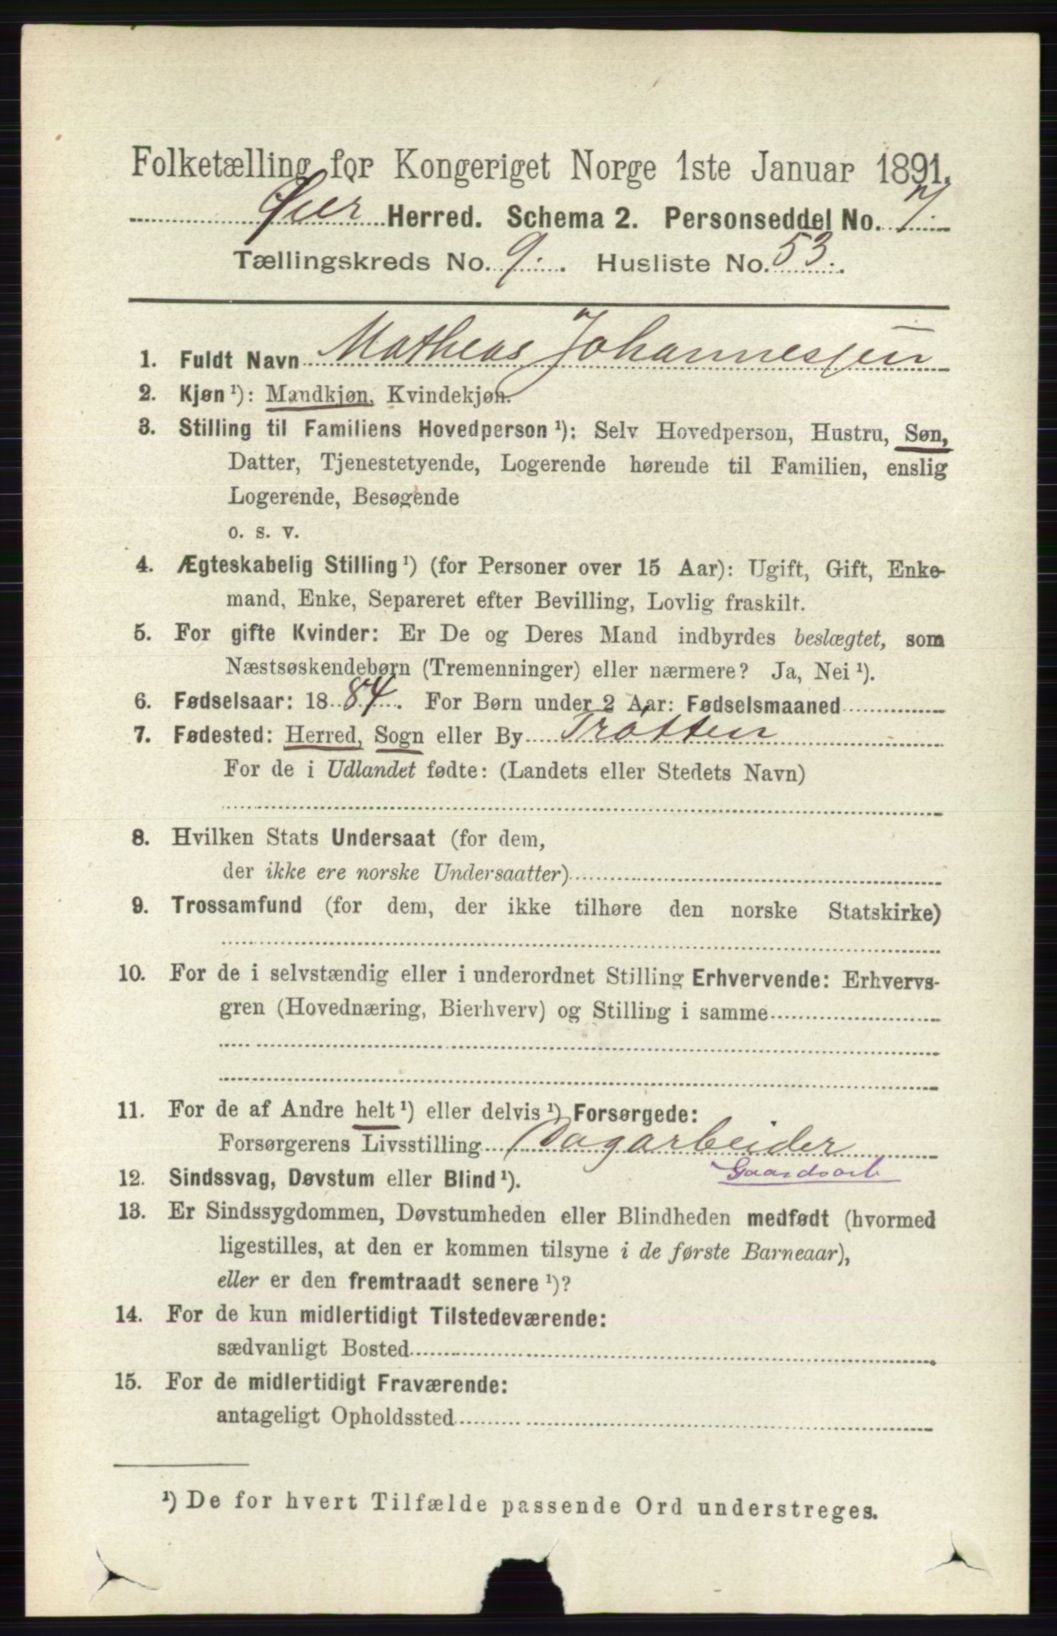 Folketælling for Kongeriget Norge 1ste Januar 1891.
Øier Herred. Schema 2. Personseddel No. 7.
Tællingskreds No. 9. Husliste No. 53.
1. Fuldt Navn Matheas Johannessen
2. Kjøn ¹): Mandkjøn, Kvindekjøn.
3. Stilling til Familiens Hovedperson ¹): Selv Hovedperson, Hustru, Søn,
Datter, Tjenestetyende, Logerende hørende til Familien, enslig
Logerende, Besøgende
o. s. v.
4. Ægteskabelig Stilling ¹) (for Personer over 15 Aar): Ugift, Gift, Enke-
mand, Enke, Separeret efter Bevilling, Lovlig fraskilt.
5. For gifte Kvinder: Er De og Deres Mand indbyrdes beslægtet, som
Næstsøskendebørn (Tremenninger) eller nærmere? Ja, Nei ¹).
6. Fødselsaar: 1884. For Børn under 2 Aar: Fødselsmaaned
7. Fødested: Herred, Sogn eller By Tròtten
For de i Udlandet fødte: (Landets eller Stedets Navn)
8. Hvilken Stats Undersaat (for dem,
der ikke ere norske Undersaatter)
9. Trossamfund (for dem, der ikke tilhøre den norske Statskirke)
10. For de i selvstændig eller i underordnet Stilling Erhvervende: Erhvervs-
gren (Hovednæring, Bierhverv) og Stilling i samme
11. For de af Andre helt ¹) eller delvis ¹) Forsørgede:
Forsørgerens Livsstilling Dagarbeider
Gaardsarb
12. Sindssvag, Døvstum eller Blind ¹).
13. Er Sindssygdommen, Døvstumheden eller Blindheden medfødt (hvormed
ligestilles, at den er kommen tilsyne i de første Barneaar),
eller er den fremtraadt senere ¹)?
14. For de kun midlertidigt Tilstedeværende:
sædvanligt Bosted
15. For de midlertidigt Fraværende:
antageligt Opholdssted
¹) De for hvert Tilfælde passende Ord understreges.